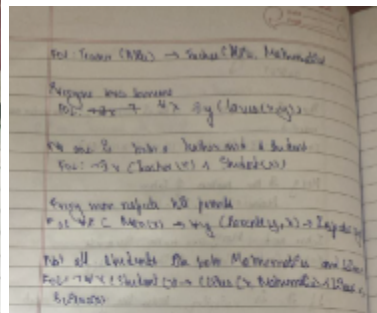 FOL: Teacher (Ali) → Teaches (Ali, Mathematics)
Everyone loves someone
FOL: ∀x ∃y (loves(x,y))
No one is both a teacher and a student
FOL: ¬∃x (Teacher(x) ∧ Student(x))
Every man respects his parents
FOL ∀x (Man(x) → ∀y (Parent(y,x) →
Not all students like both Mathematics and
FOL: ¬∀x (Student(x) → (Likes (x, Mathematics) ∧ Likes(x,